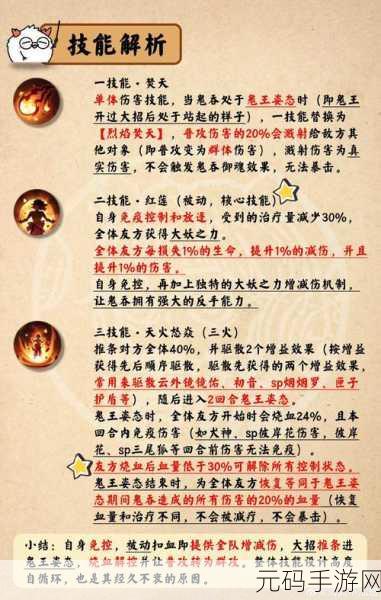 技能解析
一技能·焚天
单体伤害技能,当鬼吞处于鬼王姿态时(即鬼王
开过大招后处于站起的样子),一技能替换为
【烈焰焚天】,普攻伤害的20%会溅射给敌方其
他对象(即普攻变为群体伤害),溅射伤害为真
实伤害,不会触发鬼吞御魂效果,无法暴击。
二技能·红莲(被动,核心技能)
自身免疫控制和放逐,受到的治疗量减少30%,
全体友方获得大妖之力。
全体友方每损失1%的生命,提升1%的减伤,并且
提升1%的伤害。
自身免控,再加上独特的大妖之力增减伤机制,
让鬼吞拥有强大的反手能力。
三技能·天火怒焱(三火)
推条对方全体40%,并驱散2个增益效果(按增益
获得先后顺序驱散,驱散先获得的两个增益效果,
常用来驱散云外镜镜佑、初音、sp烟烟罗、匣子
护盾等),随后进入2回合鬼王姿态。
鬼王姿态时,全体友方开始时会烧血24%,且本
回合内免疫伤害(如犬神、sp彼岸花伤害,彼岸
花、sp三尾狐等四合前伤害无法免疫)。
友方烧血后血量低于30%可解除所有控制状态。
鬼王姿态结束时,为全体友方恢复等同于鬼王姿
态期间鬼吞造成的所有伤害的20%的血量(恢复
血量和治疗不同,不会被减疗,不会暴击)。
小结:自身免控,被动扣血即提供全队增减伤,大招推条进
鬼王姿态,烧血解控并让普攻转为群攻。整体技能设计高度
自循环,也是其经久不衰的原因。
元码手游网